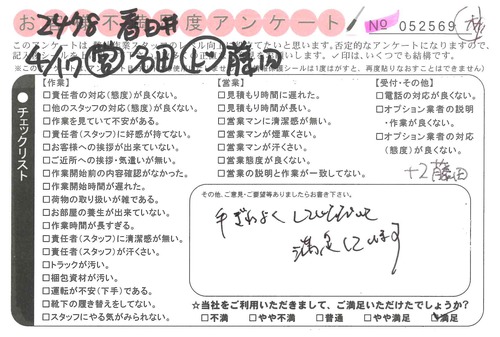 お客様不満度アンケート
No 052569
2478 春日井
4/17 営 名田 上 藤田
このアンケートは
✓印は、いくつでも結構です。
チェックリスト
【作業】
□責任者の対応(態度)が良くない。
□他のスタッフの対応(態度)が良くない。
□作業を見ていて不安がある。
□責任者(スタッフ)に好感が持てない。
□お客様への挨拶が出来ていない。
□ご近所への挨拶・気遣いが無い。
□作業開始前の内容確認がなかった。
□作業開始時間が遅れた。
□荷物の取り扱いが雑である。
□お部屋の養生が出来ていない。
□作業時間が長すぎる。
□責任者(スタッフ)に清潔感が無い。
□責任者(スタッフ)が汗くさい。
□トラックが汚い。
□梱包資材が汚い。
□運転が不安(下手)である。
□靴下の履き替えをしてない。
□スタッフにやる気がみられない。
【営業】
□見積もり時間に遅れた。
□見積もり時間が長い。
□営業マンに清潔感が無い。
□営業マンが煙草くさい。
□営業マンが汗くさい。
□営業態度が良くない。
□営業の説明と作業が一致してない。
【受付・その他】
□電話の対応が良くない。
□オプション業者の説明
・作業が良くない。
□オプション業者の対応
(態度)が良くない。
+2 藤田
その他、ご意見・ご要望等ありましたらお書き下さい。
手ぎわよくしていただいて
満足しています
☆当社をご利用いただきまして、ご満足いただけたでしょうか?
□不満 □やや不満 □普通 □やや満足 ☑満足